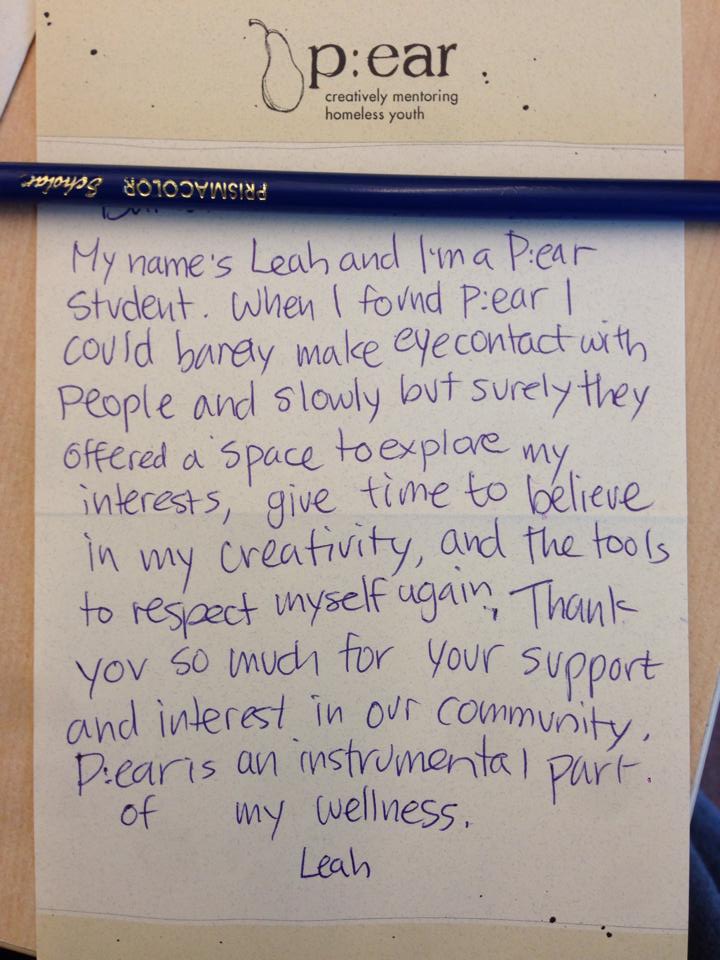 p:ear
creatively mentoring
homeless youth
PRISMACOLOR Scholar
My name's Leah and I'm a P:ear
Student. When I found P:ear I
could barely make eye contact with
People and slowly but surely they
offered a space to explore my
interests, give time to believe
in my creativity, and the tools
to respect myself again. Thank
you so much for your support
and interest in our community.
P:ear is an instrumental part.
of my wellness.
Leah